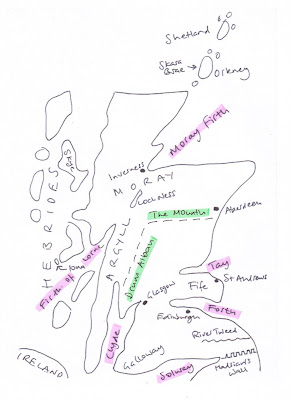 Shetland
Skara
Brae
Orkney
Moray Firth
Inverness
MORAY
Lochness
Skye
HEBRIDES
The Mounth
Aberdeen
ARGYLL
Drum Alban
Firth of Lorne
Iona
Tay
Fife
St Andrews
Glasgow
Forth
Edinburgh
River Tweed
Clyde
Galloway
Solway
Hadrian's
Wall
IRELAND